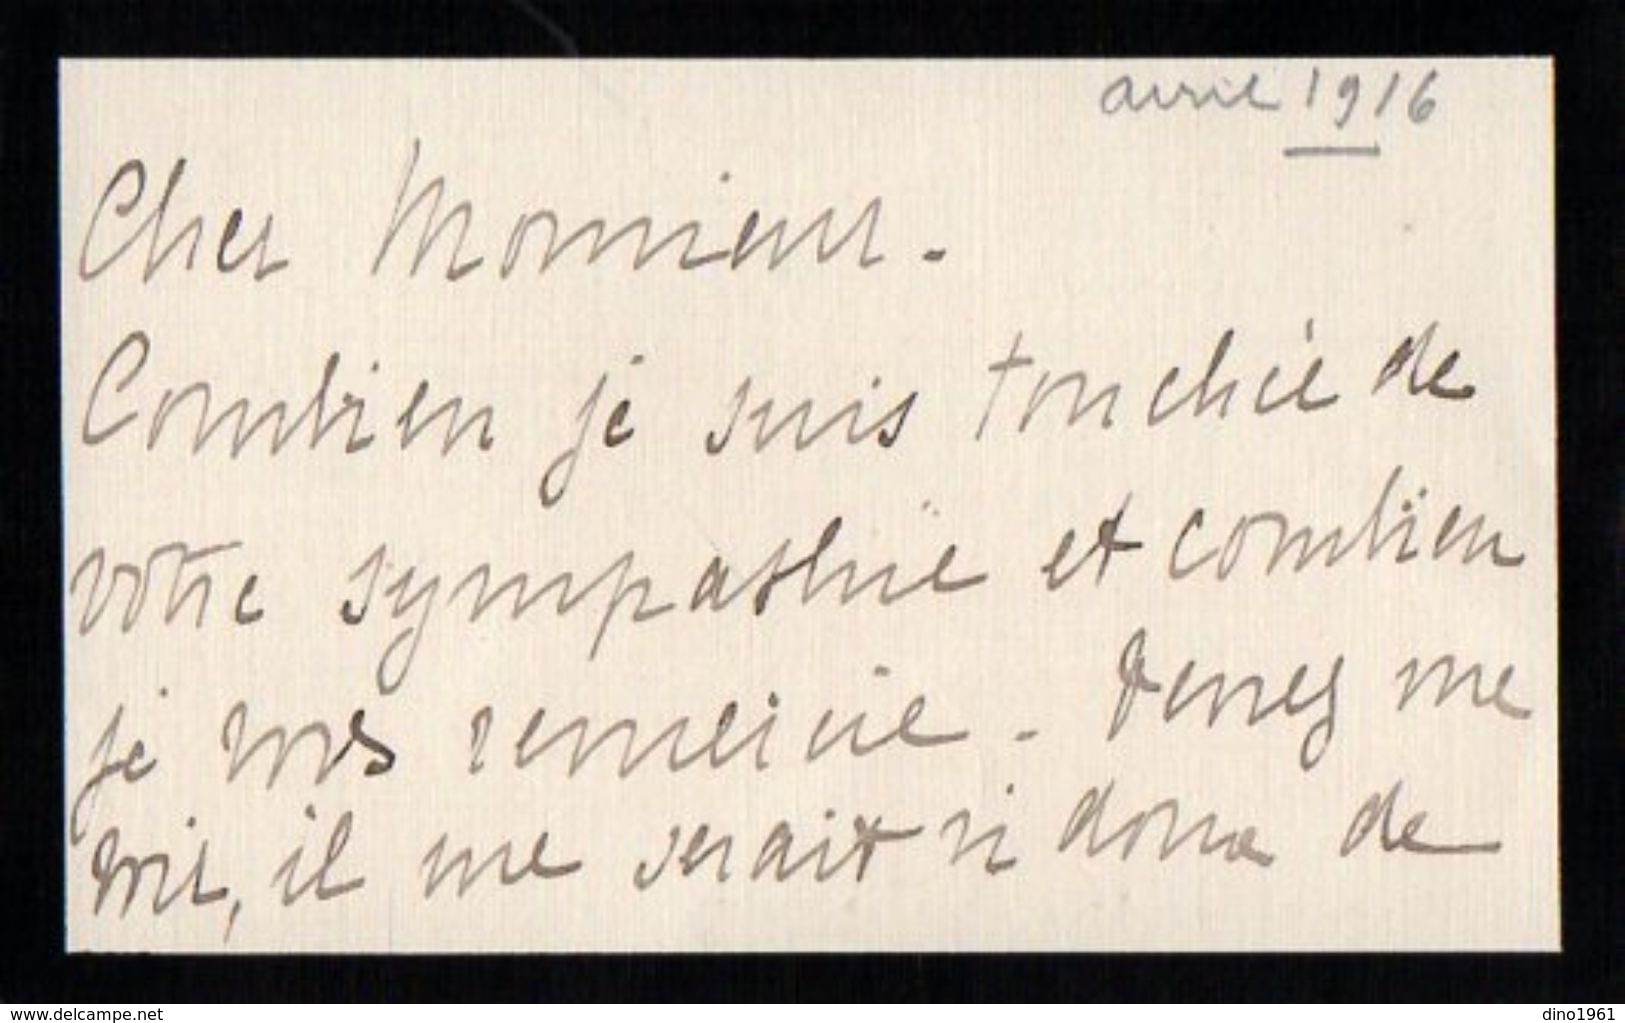 avril 1916
Cher Monsieur.
Combien je suis touchée de
votre sympathie et combien
je vous remercie. Venez me
voir, il me serait si doux de
www.delcampe.net
dino1961